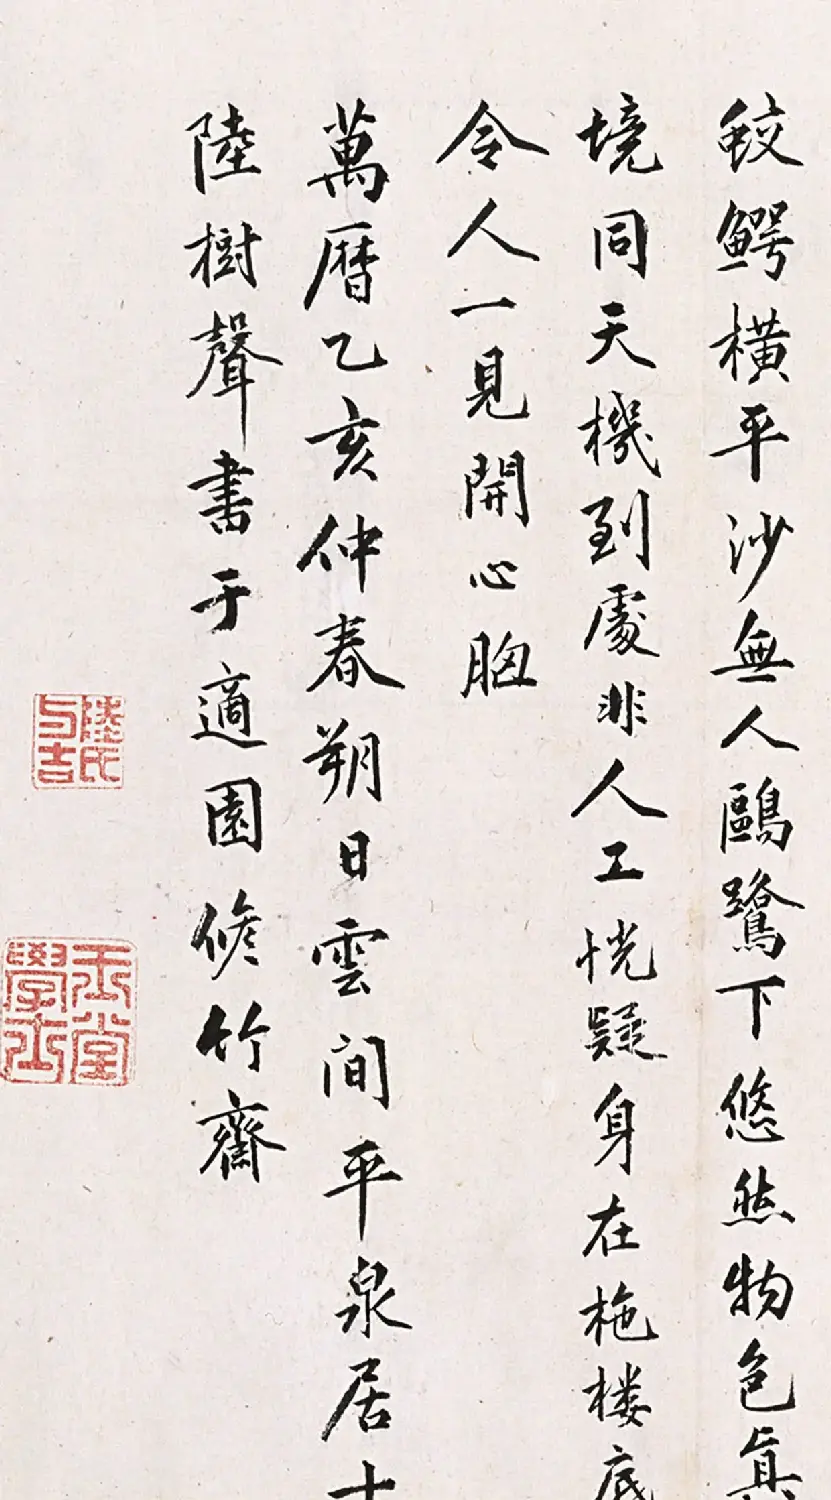 鮫鱷橫平沙無人鷗鷺下悠然物色眞
境同天機到處非人工恍疑身在柁楼底
令人一見開心胸
萬曆乙亥仲春朔日雲间平泉居士
陸樹聲書于適園修竹齋
陸氏与吉
玉堂學士